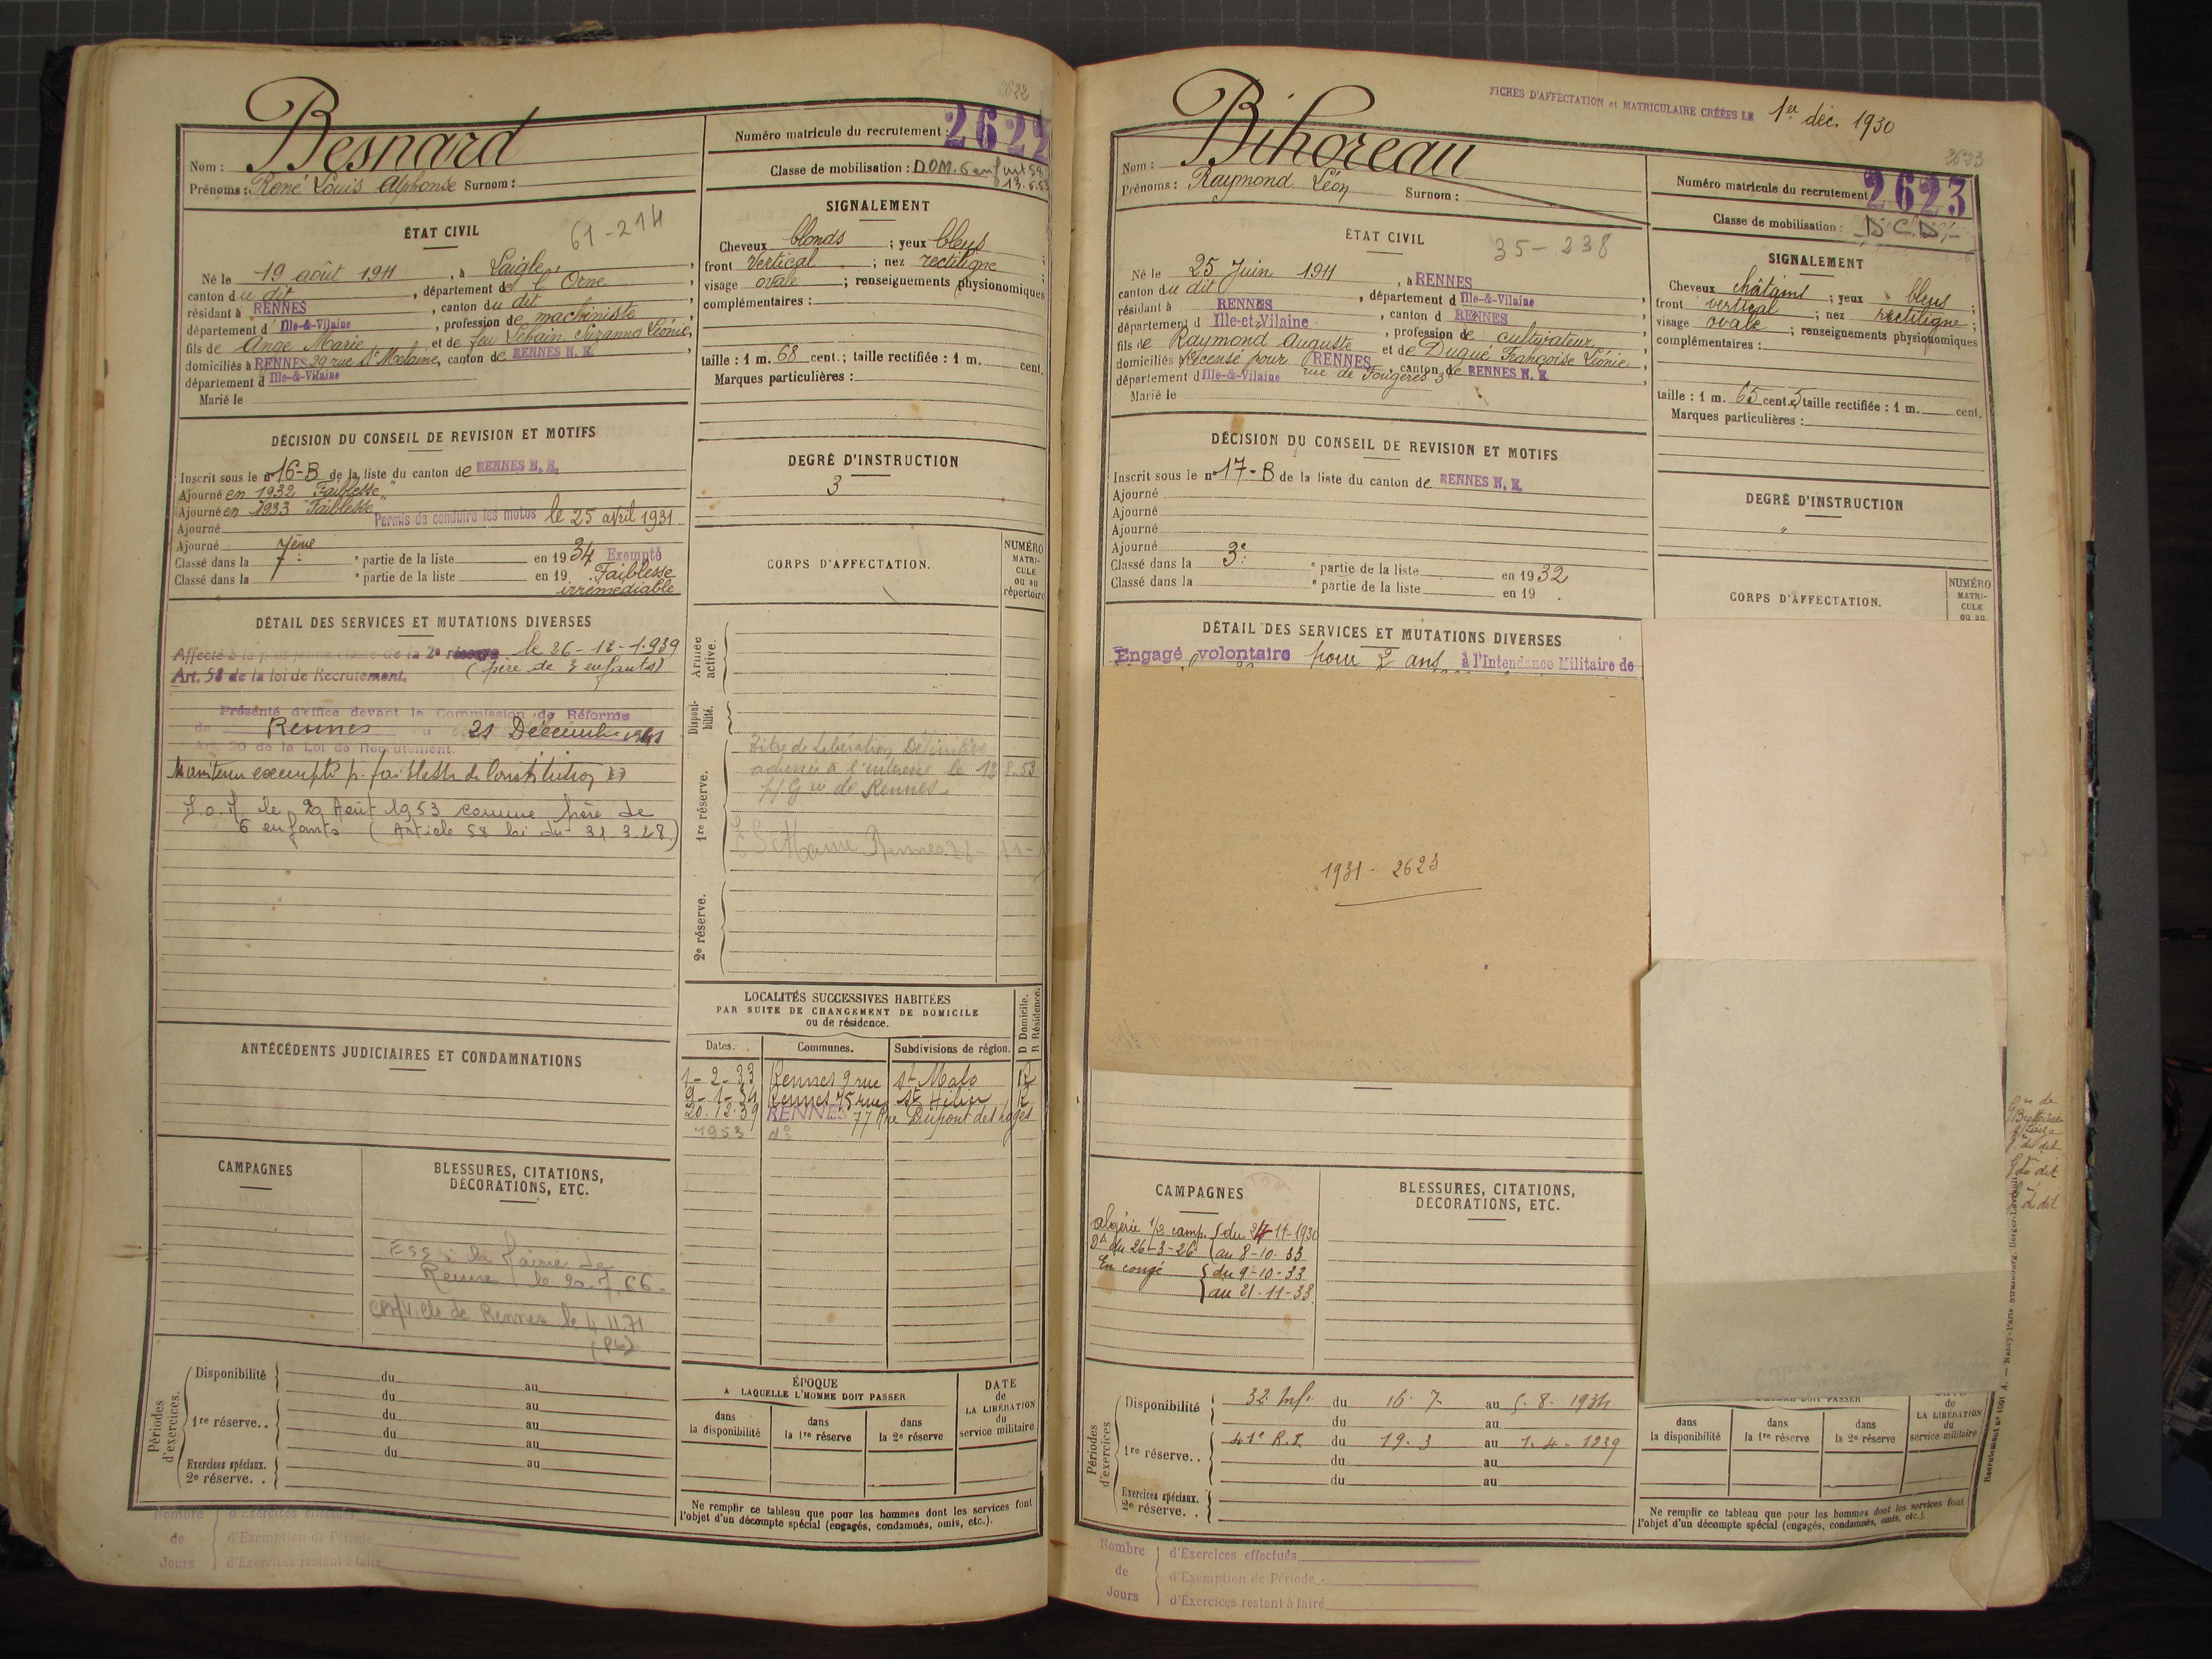 2022
Nom : Besnard
Prénoms : René Louis Alphonse Surnom :
Numéro matricule du recrutement : 2622
Classe de mobilisation : DOM. 6 enf art 58
13.6.53
ÉTAT CIVIL
61-214
Né le 19 août 1911, à Laigle,
canton du dit, département de l'Orne
résidant à RENNES, canton du dit
département d'Ille-&-Vilaine, profession de machiniste,
fils de Ange Marie et de feu Lehain Suzanne Léonie,
domiciliés à RENNES 29 rue St Malo, canton de RENNES N. E.
département d Ille-&-Vilaine
Marié le
SIGNALEMENT
Cheveux blonds ; yeux bleus ;
front vertical ; nez rectiligne ;
visage ovale ; renseignements physionomiques
complémentaires :
taille : 1 m. 68 cent.; taille rectifiée : 1 m. cent.
Marques particulières :
DÉCISION DU CONSEIL DE REVISION ET MOTIFS
Inscrit sous le n° 16-B de la liste du canton de RENNES N. E.
Ajourné en 1932 "Faiblesse"
Ajourné en 1933 "Faiblesse"
Permis de conduire les motos le 25 avril 1931
Ajourné
Ajourné
Classé dans la 7ème partie de la liste en 1934 Exempté
Classé dans la e partie de la liste en 19 . Faiblesse
irrémédiable
DEGRÉ D'INSTRUCTION
3
CORPS D'AFFECTATION.
NUMÉRO MATRI-CULE ou au répertoire
DÉTAIL DES SERVICES ET MUTATIONS DIVERSES
Affecté à la plus jeune classe de la 2e réserve le 26-12-1939
Art. 58 de la loi de Recrutement. (père de 3 enfants)
Présenté d'office devant la Commission de Réforme
de Rennes du 21 Décembre 1941
Art. 20 de la Loi de Recrutement.
Maintenu exempté p. faiblesse de Constitution
le 20 Août 1953 comme père de
6 enfants (Article 58 loi du 31.3.28)
Armée active.
Disponi-bilité.
1re réserve.
Titre de Libération Définitive
adressé à l'intéressé le 12 8.53
de Rennes
Mairie Rennes
2e réserve.
LOCALITÉS SUCCESSIVES HABITÉES
PAR SUITE DE CHANGEMENT DE DOMICILE
ou de résidence.
D Domicile. R Résidence.
Dates. Communes. Subdivisions de région.
1-2-33 Rennes 9 rue St Malo R
9-1-34 Rennes 75 rue St Hélier R
20.12.39 RENNES 77 Rue Dupont des Loges
1953 d°
ANTÉCÉDENTS JUDICIAIRES ET CONDAMNATIONS
CAMPAGNES
BLESSURES, CITATIONS,
DÉCORATIONS, ETC.
ESS à la Mairie de
Rennes le 20.7.66
Ville de Rennes le 4 11 71
Périodes d'exercices.
Disponibilité du au
du au
1re réserve.. du au
du au
du au
Exercices spéciaux.
2e réserve. .
ÉPOQUE
A LAQUELLE L'HOMME DOIT PASSER
dans la disponibilité
dans la 1re réserve
dans la 2e réserve
DATE de LA LIBÉRATION du service militaire
Ne remplir ce tableau que pour les hommes dont les services font
l'objet d'un décompte spécial (engagés, condamnés, omis, etc.).
Nombre de Jours
d'Exercices effectués
d'Exemption de Période
d'Exercices restant à faire
FICHES D'AFFECTATION et MATRICULAIRE CRÉÉES LE 1er déc. 1930
2623
Nom : Bihoreau
Prénoms : Raymond Léon Surnom :
Numéro matricule du recrutement 2623
Classe de mobilisation : DCD
ÉTAT CIVIL
35-238
Né le 25 Juin 1911, à RENNES
canton du dit, département d Ille-&-Vilaine
résidant à RENNES, canton d RENNES
département d Ille-et-Vilaine, profession de cultivateur
fils de Raymond Auguste et de Dugué Françoise Léonie,
domiciliés à recensé pour RENNES, canton de RENNES N. E.
département d Ille-&-Vilaine rue de Fougères 3
Marié le
SIGNALEMENT
Cheveux châtains ; yeux bleus ;
front vertical ; nez rectiligne ;
visage ovale ; renseignements physionomiques
complémentaires :
taille : 1 m. 65 cent. 5 taille rectifiée : 1 m. cent.
Marques particulières :
DÉCISION DU CONSEIL DE REVISION ET MOTIFS
Inscrit sous le n° 17-B de la liste du canton de RENNES N. E.
Ajourné
Ajourné
Ajourné
Ajourné
Classé dans la 3e partie de la liste en 1932
Classé dans la e partie de la liste en 19 .
DEGRÉ D'INSTRUCTION
"
CORPS D'AFFECTATION.
NUMÉRO MATRI-CULE ou au
DÉTAIL DES SERVICES ET MUTATIONS DIVERSES
Engagé volontaire pour 2 ans à l'Intendance Militaire de
1931 - 2623
CAMPAGNES
Algérie 1/2 camp. du 24-11-1930
Dt du 26-3-26 au 8-10-33
En congé du 9-10-33
au 21-11-33
BLESSURES, CITATIONS,
DÉCORATIONS, ETC.
Périodes d'exercices
Disponibilité 32 Inf. du 16.7 au 5.8.1934
du au
1re réserve.. 41e R.I. du 19.3 au 1.4.1939
du au
du au
Exercices spéciaux.
2e réserve. .
DOIT PASSER
dans la disponibilité
dans la 1re réserve
dans la 2e réserve
de LA LIBÉRATION du service militaire
Ne remplir ce tableau que pour les hommes dont les services font
l'objet d'un décompte spécial (engagés, condamnés, omis, etc.).
Nombre de Jours
d'Exercices effectués
d'Exemption de Période
d'Exercices restant à faire